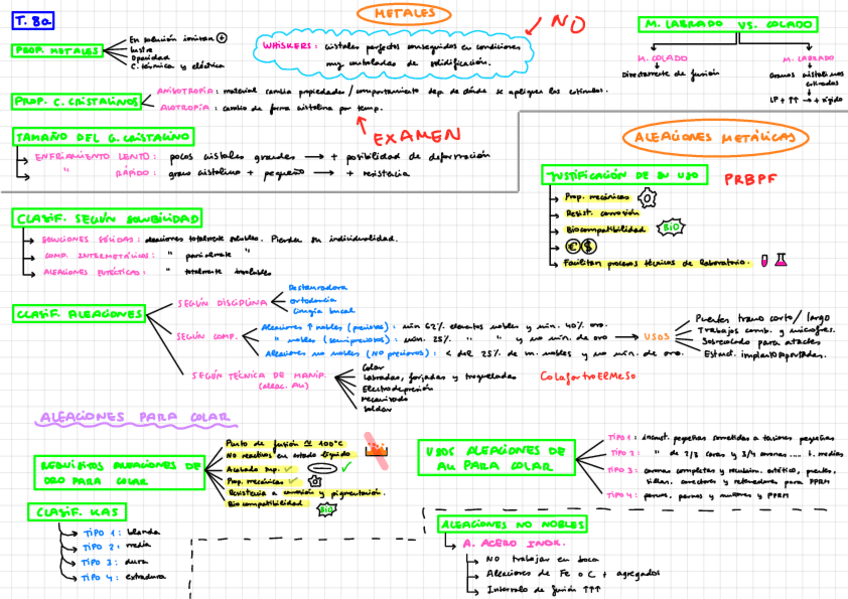 T. 8a
METALES
NO
M. LABRADO VS. COLADO
PROP. METALES
En solución ionizan +
Lustre
Opacidad
C. térmica y eléctrica
WHISKERS: cristales perfectos conseguidos en condiciones
muy controladas de solidificación.
M. COLADO
Directamente de fusión
M. LABRADO
Granos cristalinos
estirados
LP + ↑↑ → + rígido
PROP. C. CRISTALINOS
ANISOTROPÍA: material cambia propiedades / comportamiento dep. de dónde se apliquen los estímulos.
ALOTROPÍA: cambio de forma cristalina por temp.
EXAMEN
TAMAÑO DEL G. CRISTALINO
ENFRIAMIENTO LENTO: pocos cristales grandes → + posibilidad de deformación
" RÁPIDO: grano cristalino + pequeño → + resistencia
ALEACIONES METÁLICAS
JUSTIFICACIÓN DE SU USO
PRBPF
Prop. mecánicas
Resist. corrosión
Biocompatibilidad BIO
€ $
Facilitan procesos técnicos de laboratorio.
CLASIF. SEGÚN SOLUBILIDAD
SOLUCIONES SÓLIDAS: aleaciones totalmente solubles. Pierden su individualidad.
COMP. INTERMETÁLICOS: " parcialmente "
ALEACIONES EUTÉCTICAS: " totalmente insolubles
CLASIF. ALEACIONES
SEGÚN DISCIPLINA
Restauradora
Ortodoncia
Cirugía bucal
SEGÚN COMP.
Aleaciones ↑ nobles (preciosos): mín 62% elementos nobles y mín. 40% oro.
" nobles (semipreciosos): mín. 25% " " y no mín. de oro → USOS
Aleaciones no nobles (NO preciosos): < del 25% de m. nobles y no mín. de oro.
Puentes tramo corto / largo
Trabajos comb. y microfres.
Sobrecolado para ataches
Estruct. implantosoportadas.
SEGÚN TÉCNICA DE MANIP.
(aleac. Au)
Colar
Labradas, forjadas y troqueladas
Electrodeposición
Mecanizado
Soldar
ColaFortroElMeSo
ALEACIONES PARA COLAR
REQUISITOS ALEACIONES DE
ORO PARA COLAR
Punto de fusión ≅ 100°C
No reactivos en estado líquido
Acabado sup. ✓ ✓
Prop. mecánicas ✓
Resistencia a corrosión y pigmentación.
Biocompatibilidad BIO
USOS ALEACIONES DE
AU PARA COLAR
TIPO 1: incrust. pequeñas sometidas a tensiones pequeñas
TIPO 2: " de 2/3 caras y 3/4 coronas .... t. medias
TIPO 3: coronas completas y recubrim. estético, puentes,
sillas, conectores y retenedores para PPRM
TIPO 4: pernos y muñones y PPRM
CLASIF. UAS
TIPO 1: blanda
TIPO 2: media
TIPO 3: dura
TIPO 4: extradura
ALEACIONES NO NOBLES
A. ACERO INOX.
NO trabajar en boca
Aleaciones de Fe o C + agregados
Intervalo de fusión ↑↑↑